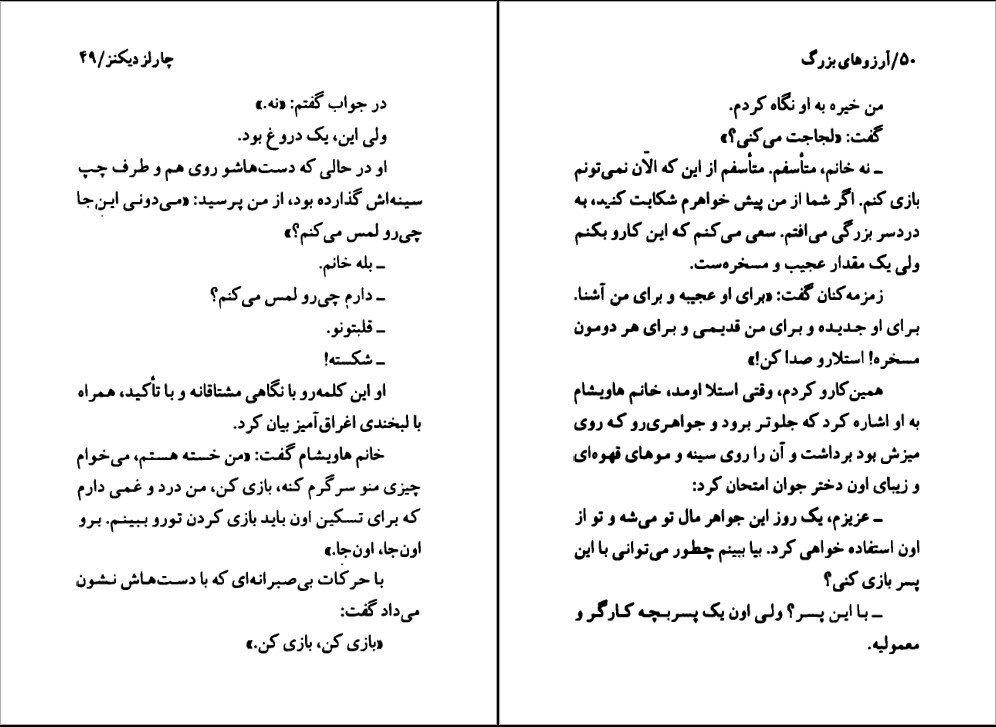 چارلز دیکنز/۴۹
در جواب گفتم: «نه.»
ولی این، یک دروغ بود.
او در حالی که دست‌هاشو روی هم و طرف چپ
سینه‌اش گذارده بود، از من پرسید: «می‌دونی این‌جا
چی‌رو لمس می‌کنم؟»
ــ بله خانم.
ــ دارم چی‌رو لمس می‌کنم؟
ــ قلبتونو.
ــ شکسته!
او این کلمه‌رو با نگاهی مشتاقانه و با تأکید، همراه
با لبخندی اغراق‌آمیز بیان کرد.
خانم هاویشام گفت: «من خسته هستم، می‌خوام
چیزی منو سرگرم کنه، بازی کن، من درد و غمی دارم
که برای تسکین اون باید بازی کردن تورو ببینم. برو
اون‌جا، اون‌جا.»
با حرکات بی‌صبرانه‌ای که با دست‌هاش نشون
می‌داد گفت:
«بازی کن، بازی کن.»
۵۰/آرزوهای بزرگ
من خیره به او نگاه کردم.
گفت: «لجاجت می‌کنی؟»
ــ نه خانم، متأسفم. متأسفم از این که الآن نمی‌تونم
بازی کنم. اگر شما از من پیش خواهرم شکایت کنید، به
دردسر بزرگی می‌افتم. سعی می‌کنم که این کارو بکنم
ولی یک مقدار عجیب و مسخره‌ست.
زمزمه‌کنان گفت: «برای او عجیبه و برای من آشنا.
برای او جدیده و برای من قدیمی و برای هر دومون
مسخره! استلارو صدا کن!»
همین‌کارو کردم، وقتی استلا اومد، خانم هاویشام
به او اشاره کرد که جلوتر برود و جواهری‌رو که روی
میزش بود برداشت و آن را روی سینه و موهای قهوه‌ای
و زیبای اون دختر جوان امتحان کرد:
ــ عزیزم، یک روز این جواهر مال تو می‌شه و تو از
اون استفاده خواهی کرد. بیا ببینم چطور می‌توانی با این
پسر بازی کنی؟
ــ با این پسر؟ ولی اون یک پسربچه کارگر و
معمولیه.